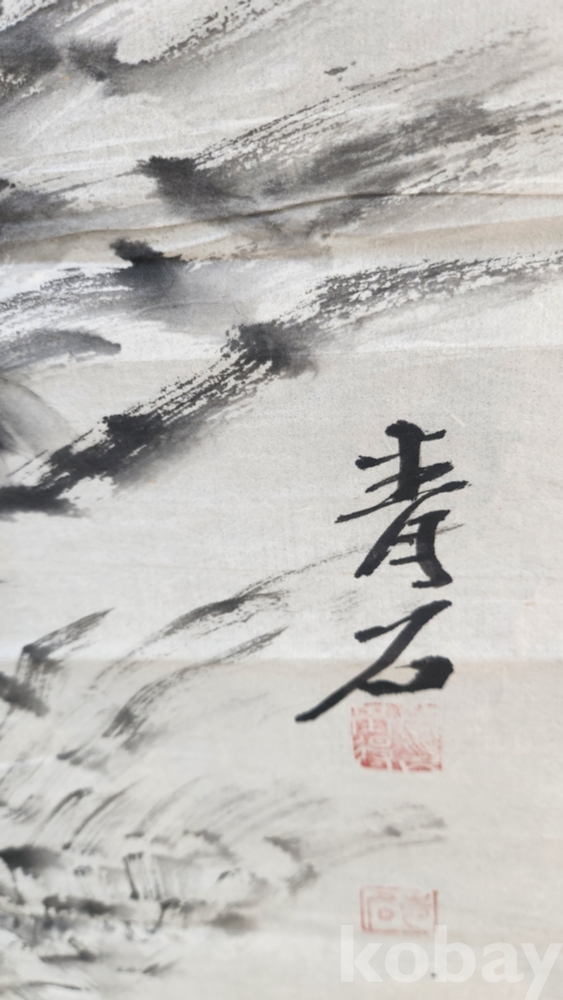 青石
kobay